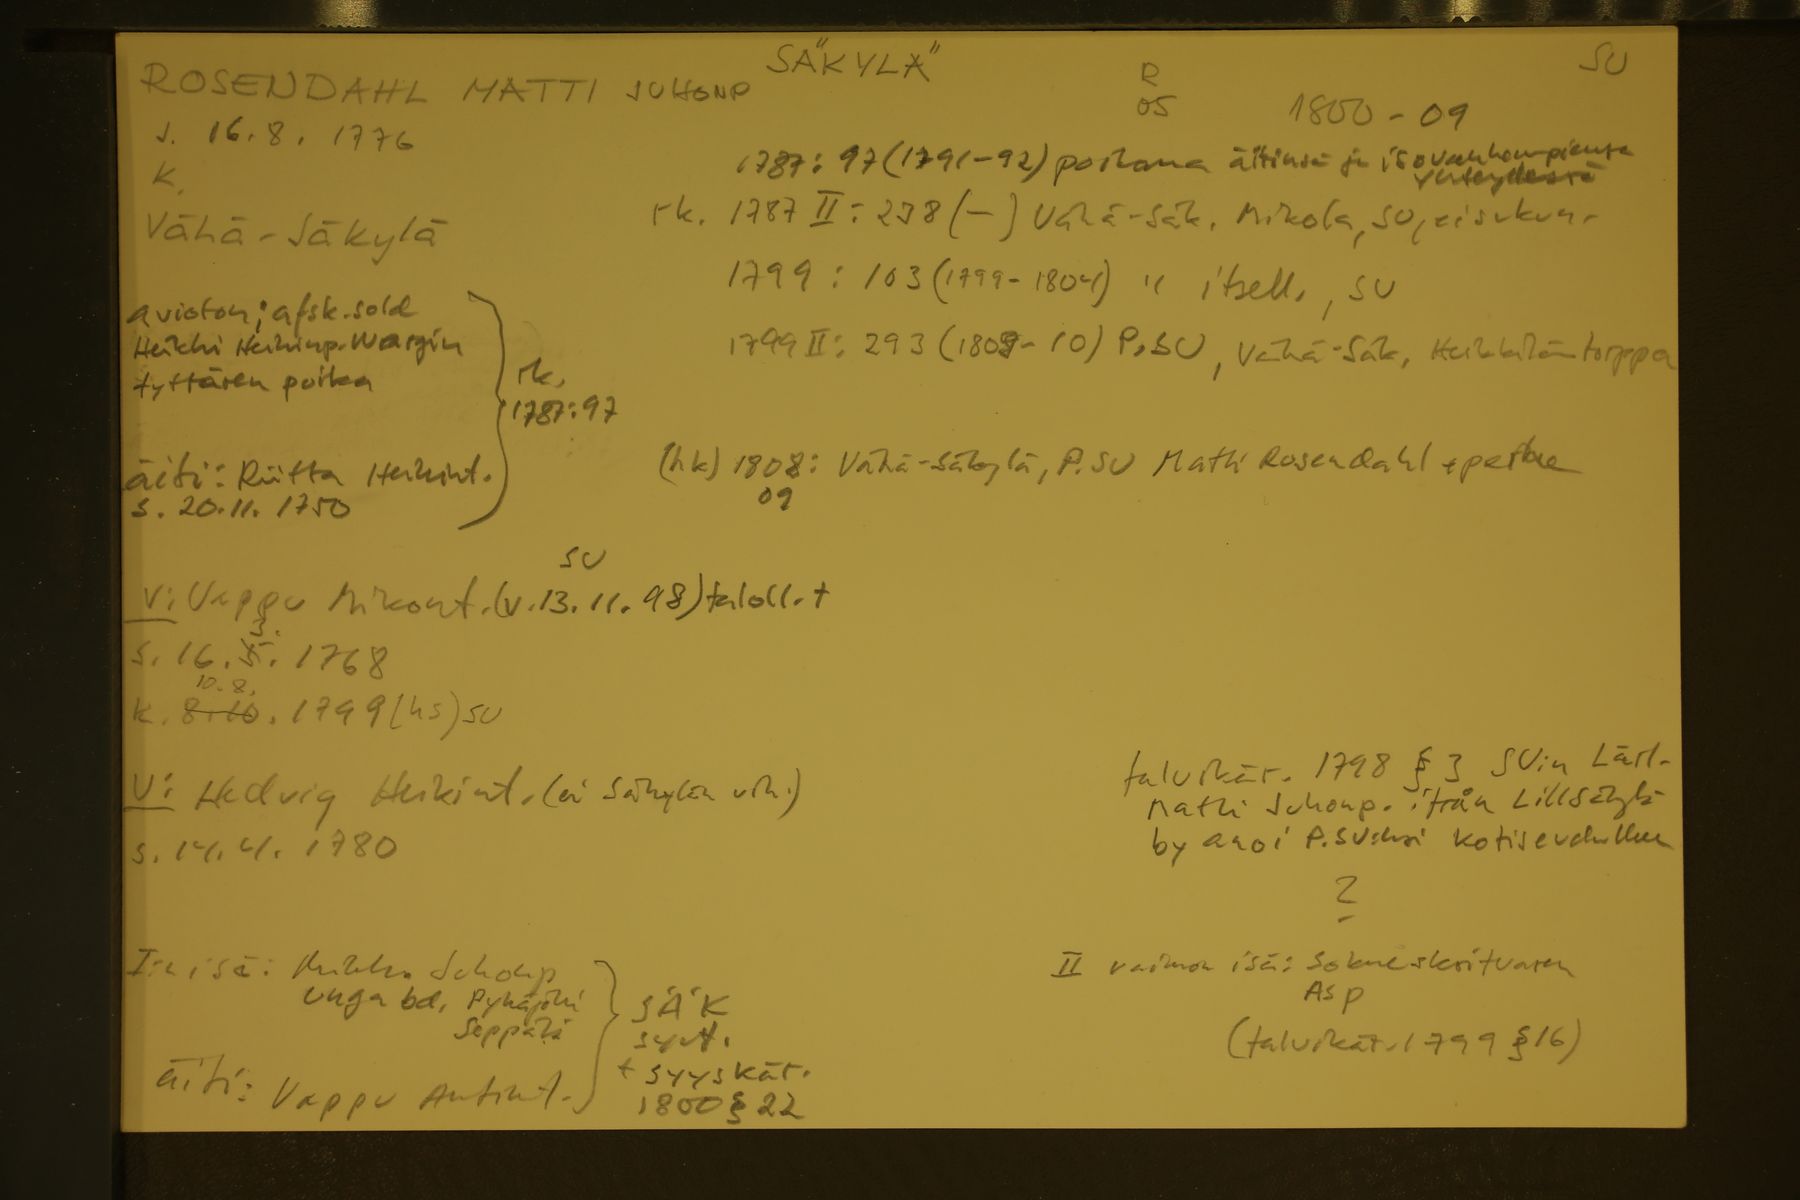 SÄKYLÄ
SU
ROSENDAHL MATTI JUHONP
R
05
1800-09
s. 16.8. 1776
K.
Vähä-Säkylä
1787: 97 (1791-92) poikana äitinsä ja isovanhempiensa
yhteydessä
rk. 1787 II: 238 (-) Vähä-Säk. Mikola, SU, ei sukun.
1799: 103 (1799-1804) " itsell., SU
1799 II: 293 (1808-10) P.SU, Vähä-Säk, Heikkilän torppa
avioton; afsk. sold
Heikki Heikinp. Wargin
tyttären poika
rk.
1787: 97
äiti: Riitta Heikint.
s. 20.11. 1750
(hk) 1808: Vähä-Säkylä, P.SU Matti Rosendahl + perhe
09
SU
V: Vappu Mikont. (v. 13.11. 98) taloll. t
s. 16.3. 1768
10.8.
k. 8.10. 1799 (hs) SU
V: Hedvig Heikint. (ei Säkylän vih.)
s. 14.4. 1780
talvikär. 1798 § 3 SU:n Lärl.
Matti Juhonp. ifrån Lillsäkylä
by anoi P.SU:ksi kotiseudulleen
?
I:n isä: Mikko Juhonp
unga bd, Pyhäjoki
Seppälä
äiti: Vappu Antint.
SÄK
synt.
+ syyskär.
1800 § 22
II vaimon isä: Sokneskrifvaren
Asp
(talvikär. 1799 § 16)